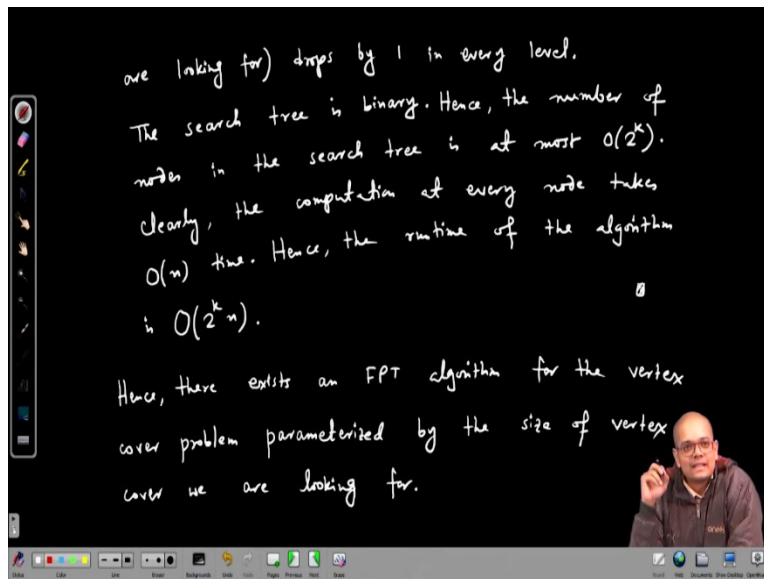 are looking for) drops by 1 in every level.
The search tree is binary. Hence, the number of
nodes in the search tree is at most O(2^k).
clearly, the computation at every node takes
O(n) time. Hence, the runtime of the algorithm
is O(2^k n).
Hence, there exists an FPT algorithm for the vertex
cover problem parameterized by the size of vertex
cover we are looking for.
Color
Line
Eraser
Backgrounds
Undo
Pages
Previous
Next
Erase
Board
Web
Documents
Show Desktop